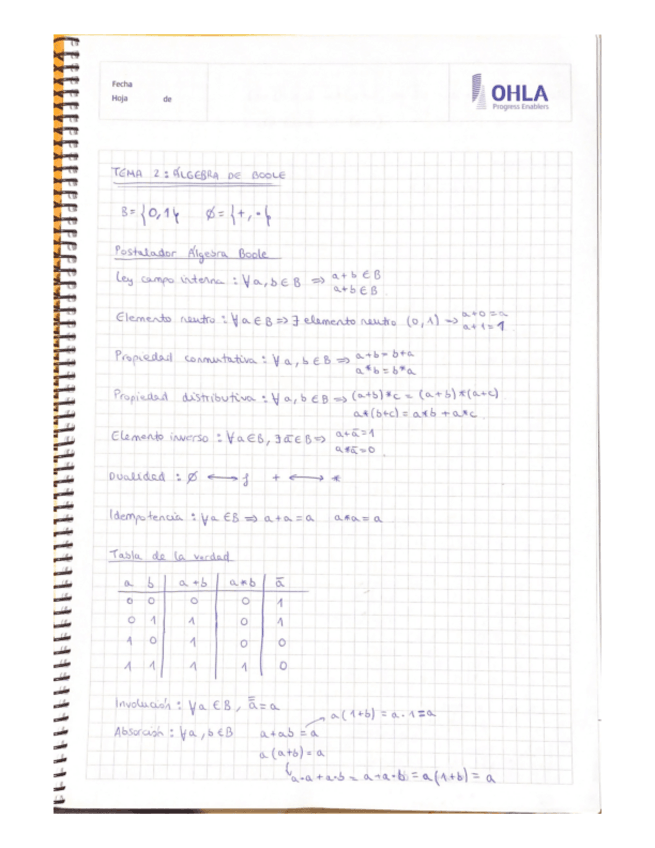 Fecha
Hoja de
OHLA
Progress Enablers
TEMA 2: ÁLGEBRA DE BOOLE
B={0,1} ∅={+,·}
Postulador Álgebra Boole
Ley campo interna: ∀a,b∈B ⇒ a+b∈B
a+b∈B
Elemento neutro: ∀a∈B ⇒ ∃ elemento neutro (0,1) ⇒ a+0=a
a+1=1
Propiedad conmutativa: ∀a,b∈B ⇒ a+b=b+a
a*b=b*a
Propiedad distributiva: ∀a,b∈B ⇒ (a+b)*c=(a+b)*(a+c)
a*(b+c)=a*b+a*c
Elemento inverso: ∀a∈B, ∃ā∈B ⇒ a+ā=1
a*ā=0
Dualidad: ∅ ⟷ 1 + ⟷ *
Idempotencia: ∀a∈B ⇒ a+a=a a*a=a
Tabla de la verdad
a b a+b a*b ā
0 0 0 0 1
0 1 1 0 1
1 0 1 0 0
1 1 1 1 0
Involución: ∀a∈B, a̿=a
a(1+b)=a·1=a
Absorción: ∀a,b∈B a+ab=a
a(a+b)=a
a·a+a·b=a+a·b=a(1+b)=a